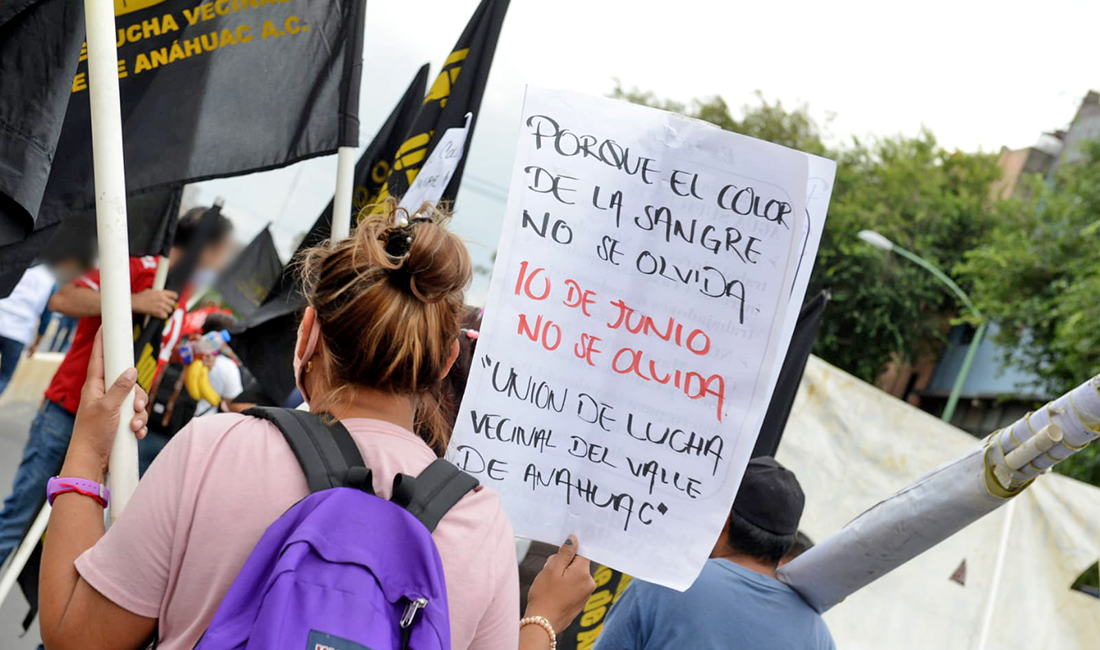 LUCHA VECINAL
DE ANÁHUAC A.C.
PORQUE EL COLOR
DE LA SANGRE
NO SE OLVIDA.
10 DE JUNIO
NO SE OLVIDA.
"UNION DE LUCHA
VECINAL DEL VALLE
DE ANAHUAC"